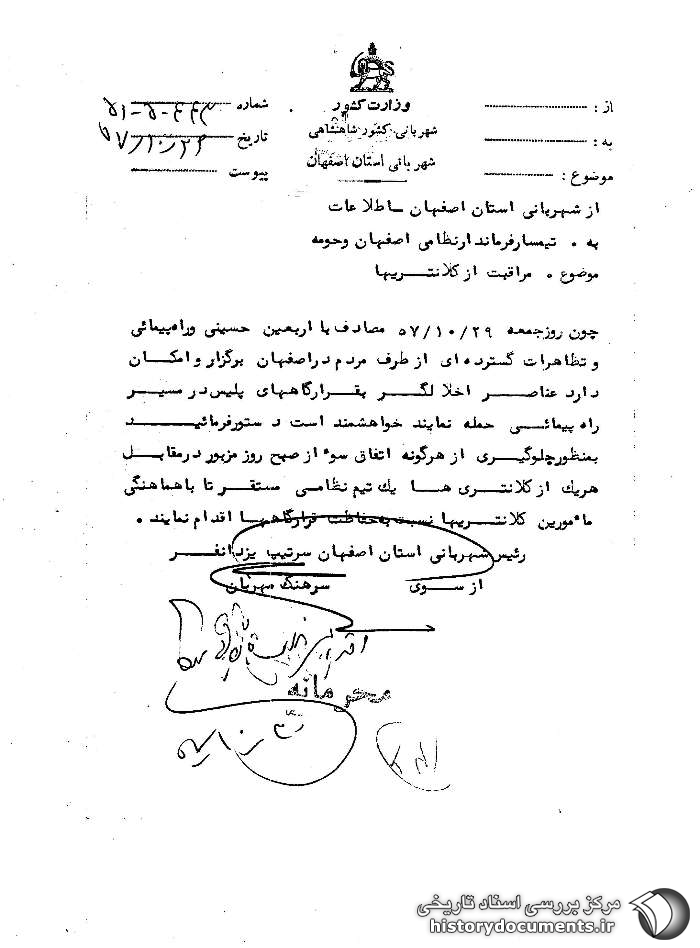 وزارت کشور
شهربانی کشور شاهنشاهی
شهربانی استان اصفهان
از :
به :
موضوع :
شماره
تاریخ
پیوست
از شهربانی استان اصفهان ـ اطلاعات
به ٠ تیمسار فرماندار نظامی اصفهان و حومه
موضوع ٠ مراقبت از کلانتریها
چون روز جمعه ۵۷/۱۰/۲۹ مصادف با اربعین حسینی و راه پیمائی
و تظاهرات گسترده ای از طرف مردم در اصفهان برگزار و امکان
دارد عناصر اخلالگر بقرارگاههای پلیس در مسیر
راه پیمائی حمله نمایند خواهشمند است دستور فرمائید
بمنظور جلوگیری از هرگونه اتفاق سوء از صبح روز مزبور در مقابل
هریک از کلانتری ها یک تیم نظامی مستقر تا با هماهنگی
مأمورین کلانتریها نسبت به حفاظت قرارگاهها اقدام نمایند ٠
رئیس شهربانی استان اصفهان سرتیپ یزدانفر
از سوی سرهنگ مهربان
محرمانه
مرکز بررسی اسناد تاریخی
historydocuments.ir